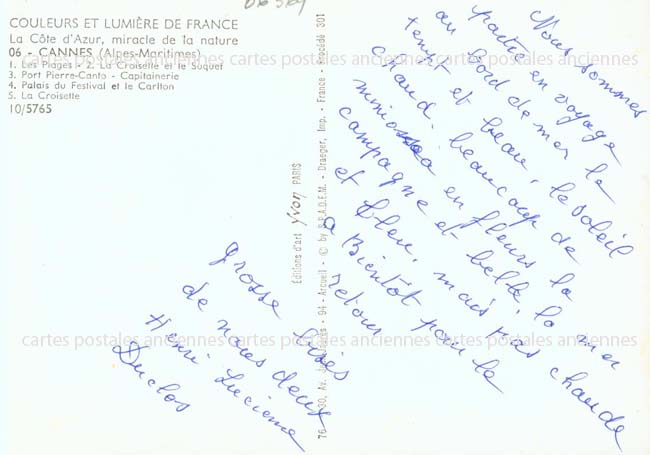 06 569
COULEURS ET LUMIÈRE DE FRANCE
La Côte d'Azur, miracle de la nature
06 - CANNES (Alpes-Maritimes)
1. Les Plages - 2. La Croisette et le Suquet
3. Port Pierre-Canto - Capitainerie
4. Palais du Festival et le Carlton
5. La Croisette
10/5765
cartes postales anciennes cartes postales anciennes cartes postales anciennes
Editions d'art Yvon PARIS
30, Av. - 94 - Arcueil - © by S.P.A.D.E.M. - Draeger, Imp. - France - Procédé 301
Nous sommes
partie en voyage
au bord de mer le
temps et beau, le soleil
chaud. beaucoup de
mimosa en fleurs la
campagne et belle, la mer
et bleu, mais pas chaude
a Bientôt pour le
retour
grosse bises
de nous deux
Henri Lucienne
Duclos
cartes postales anciennes cartes postales anciennes cartes postales anciennes